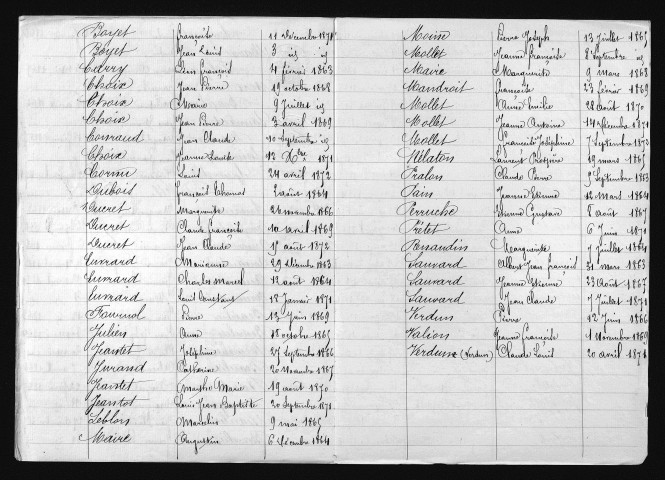 Boyet Françoise 11 décembre 1871
Boyet Jean Louis 3 id
Carry Jean François 4 février 1863
Choix Jean Pierre 19 octobre 1868
Choix Marie 9 Juillet id
Choix Jean Pierre 3 avril 1869
Comraud Jean Claude 10 Septembre id
Choix Jeanne 12 Xbre 1871
Cornu Louis 24 avril 1872
Dubois François Thomas 2 août 1864
Ducret Marguerite 26 novembre 1866
Ducret Claude François 10 avril 1869
Ducret Jean Claude 1er août 1872
Marianne 29 décembre 1863
Charles Marcel 12 août 1864
Louis Constant 18 Janvier 1871
Pierre 13 Juin 1869
Julien Anne 18 octobre 1865
Jeantet Joséphine 27 Septembre 1866
Jurand Catherine 20 Novembre 1867
Jeantet Marthe Marie 19 août 1870
Jeantet Louis Jean Baptiste 20 Septembre 1871
Leblois Marcelin 9 mai 1865
Maire Augustin 6 décembre 1864
Moine Pierre Joseph 13 Juillet 1865
Mollet Jeanne Françoise 8 Septembre id
Maire Marguerite 9 mars 1868
Mandroit Françoise 23 février 1869
Mollet Aimé Emilie 28 août 1870
Mollet Jeanne Antoine 14 décembre 1871
Mollet Françoise Joséphine 7 Septembre 1873
Nélaton Laurent 19 mars 1865
Pralon Claude Pierre 9 Septembre 1863
Pain Jeanne Etienne 12 mars 1864
Perruche Etienne Gustave 8 août 1867
Prêtet Anne 6 Juin 1871
Renaudin Marguerite 7 Juillet 1864
Sauvard Albert Jean François 31 mars 1863
Sauvard Jeanne Etienne 23 août 1867
Sauvard Jean Claude 7 Juillet 1871
Verdun Pierre 12 Juin 1866
Valion Jeanne Françoise 1 novembre 1869
Verdun (Verdun) Claude Louis 20 avril 1871